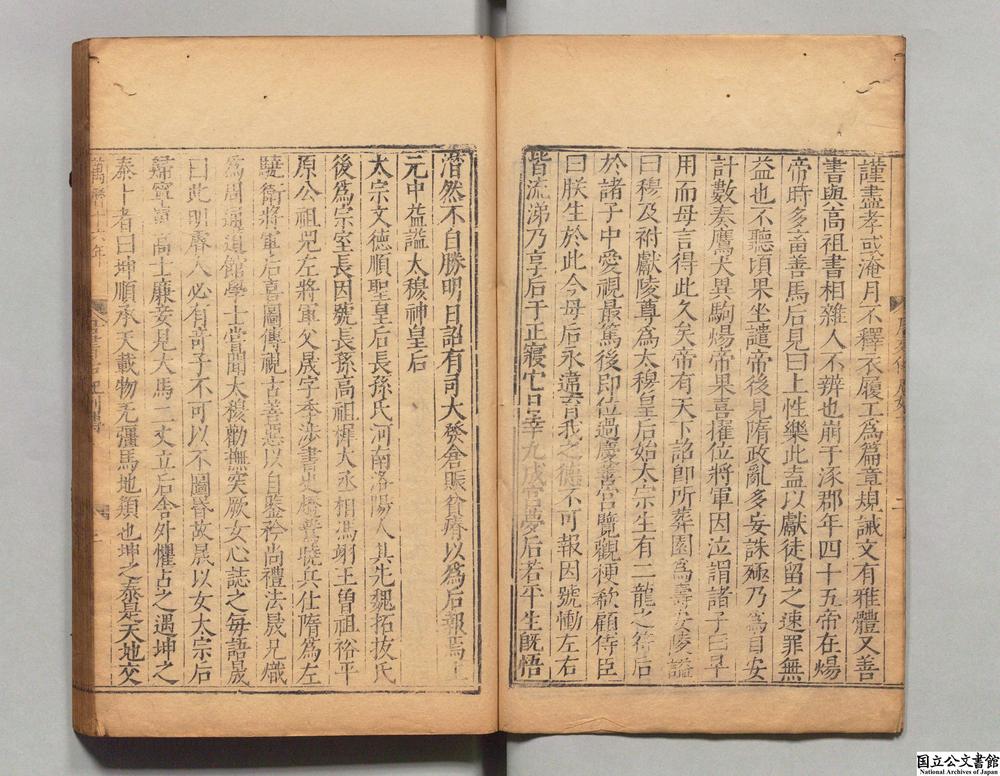 謹盡孝或淹月不釋衣履工爲篇章規誡文有雅體又善
書與高祖書相雜人不辨也崩于涿郡年四十五帝在煬
帝時多畜善馬后見曰上性樂此盍以獻徒留之速罪無
益也不聽頃果坐譴帝後見隋政亂多妄誅殛乃爲自安
計數奏鷹犬異駒煬帝果喜擢位將軍因泣謂諸子曰早
用而母言得此久矣帝有天下詔卽所葬園爲壽安陵諡
曰穆及祔獻陵尊爲太穆皇后始太宗生有二龍之符后
於諸子中愛視最篤後即位過慶善宮覽觀梗欷顧侍臣
曰朕生於此今母后永違育我之德不可報因號慟左右
皆流涕乃享后于正寢它日幸九成宮夢后若平生旣悟
潸然不自勝明日詔有司大發倉賑貧瘠以爲后報焉上
元中益諡太穆神皇后
太宗文德順聖皇后長孫氏河南洛陽人其先魏拓拔氏
後爲宗室長因號長孫高祖稚大丞相馮翊王曾祖裕平
原公祖兕左將軍父晟字季涉書史趫鷙曉兵仕隋爲左
驍衛將軍后喜圖傳視古善惡以自鑒矜尚禮法晟兄熾
爲周通道館學士嘗聞太穆勸撫突厥女心誌之每語晟
曰此明睿人必有奇子不可以不圖昏故晟以女太宗后
歸寧舅高士廉妾見大馬二丈立后舍外懼占之遇坤之
泰卜者曰坤順承天載物无彊馬地類也坤之泰是天地交
萬曆十六年
唐書后妃列傳
国立公文書館
National Archives of Japan